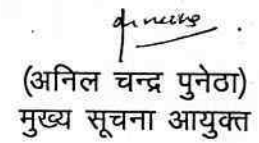 (अनिल चन्द्र पुनेठा)
मुख्य सूचना आयुक्त